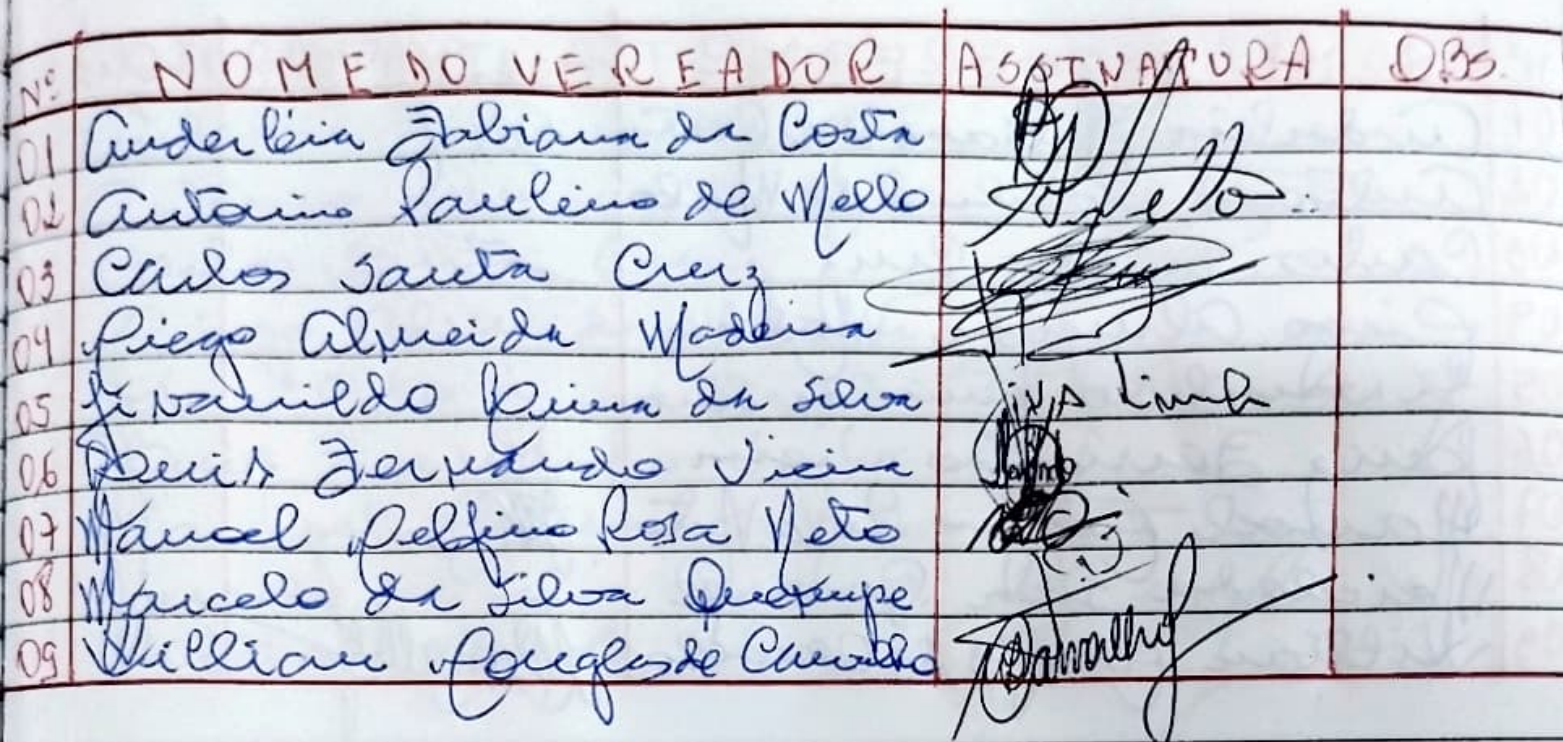 Nº NOME DO VEREADOR ASSINATURA OBS.
01 Anderléia Fabiana da Costa
02 Antonio Paulino de Mello A. Mello
03 Carlos Santa Cruz
04 Diego Almeida Madeira
05 Givanildo da Silva Giva Lima
06 Luis Fernando Vieira
07 Manoel Delfino Rosa Neto
08 Marcelo da Silva
09 Willian Douglas de Carvalho Carvalho